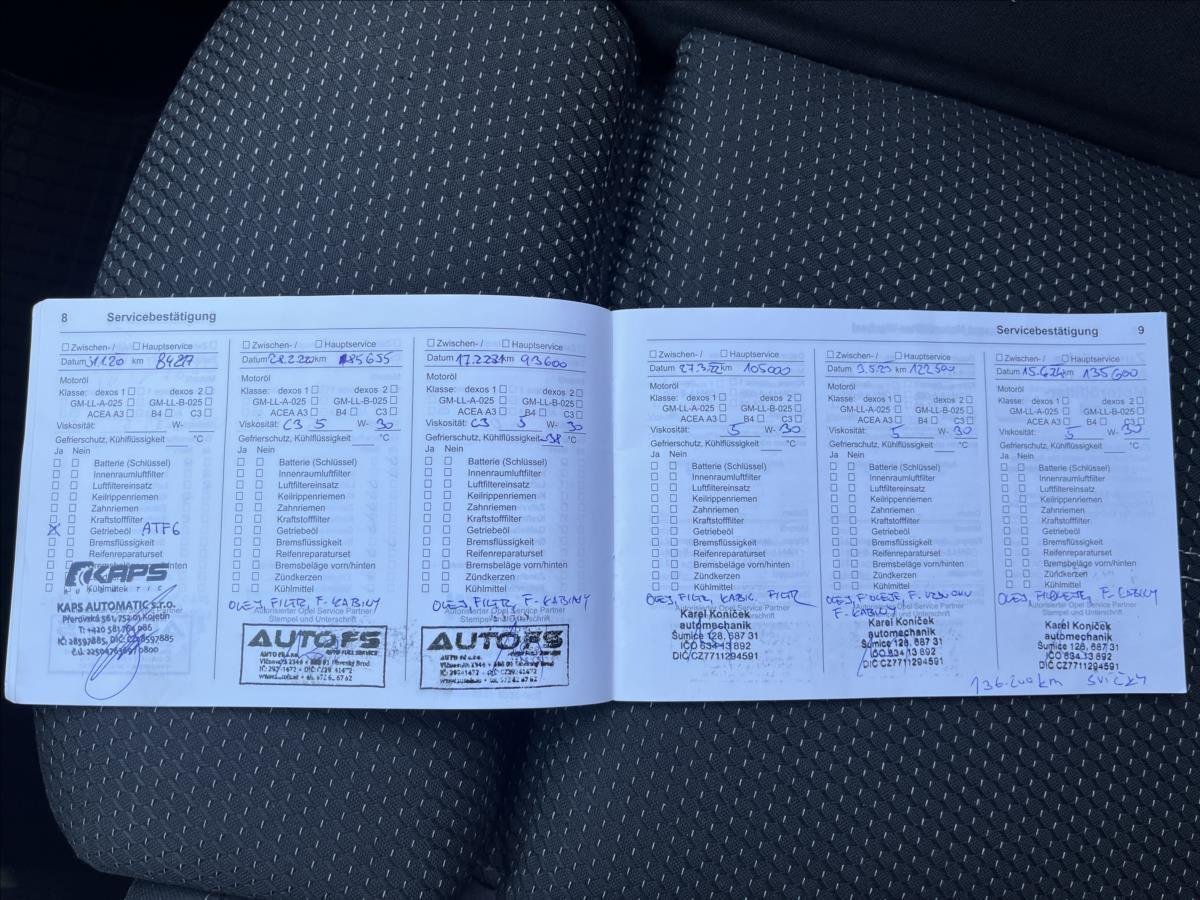 8 Servicebestätigung
Zwischen-/ Hauptservice
Datum 31.1.20 km
Motoröl
Klasse: dexos 1 dexos 2
GM-LL-A-025 GM-LL-B-025
ACEA A3 B4 C3
Viskosität: W-
Gefrierschutz, Kühlflüssigkeit °C
Ja Nein
Batterie (Schlüssel)
Innenraumluftfilter
Luftfiltereinsatz
Keilrippenriemen
Zahnriemen
Kraftstofffilter
X Getriebeöl ATF6
Bremsflüssigkeit
Reifenreparaturset
Bremsbeläge vorn/hinten
Kühlmittel
KAPS
AUTOMATIC
KAPS AUTOMATIC s.r.o.
Přerovská 561, 752 01 Kojetín
Zwischen-/ Hauptservice
Datum km 85655
Motoröl
Klasse: dexos 1 dexos 2
GM-LL-A-025 GM-LL-B-025
ACEA A3 B4 C3
Viskosität: C3 5 W- 30
Gefrierschutz, Kühlflüssigkeit °C
Ja Nein
Batterie (Schlüssel)
Innenraumluftfilter
Luftfiltereinsatz
Keilrippenriemen
Zahnriemen
Kraftstofffilter
Getriebeöl
Bremsflüssigkeit
Reifenreparaturset
Bremsbeläge vorn/hinten
Zündkerzen
Kühlmittel
OLEJ, FILTR, F. KABINY
Autorisierter Opel Service Partner
Stempel und Unterschrift
AUTO FS
AUTO FUEL SERVICE
Zwischen-/ Hauptservice
Datum km 93600
Motoröl
Klasse: dexos 1 dexos 2
GM-LL-A-025 GM-LL-B-025
ACEA A3 B4 C3
Viskosität: C3 5 W- 30
Gefrierschutz, Kühlflüssigkeit -38 °C
Ja Nein
Batterie (Schlüssel)
Innenraumluftfilter
Luftfiltereinsatz
Keilrippenriemen
Zahnriemen
Kraftstofffilter
Getriebeöl
Bremsflüssigkeit
Reifenreparaturset
Bremsbeläge vorn/hinten
Zündkerzen
Kühlmittel
OLEJ, FILTR, F. KABINY
Autorisierter Opel Service Partner
Stempel und Unterschrift
AUTO FS
AUTO FUEL SERVICE
Servicebestätigung 9
Zwischen-/ Hauptservice
Datum 27.3.22 km 105000
Motoröl
Klasse: dexos 1 dexos 2
GM-LL-A-025 GM-LL-B-025
ACEA A3 B4 C3
Viskosität: 5 W- 30
Gefrierschutz, Kühlflüssigkeit °C
Ja Nein
Batterie (Schlüssel)
Innenraumluftfilter
Luftfiltereinsatz
Keilrippenriemen
Zahnriemen
Kraftstofffilter
Getriebeöl
Bremsflüssigkeit
Reifenreparaturset
Bremsbeläge vorn/hinten
Zündkerzen
Kühlmittel
OLEJ, FILTR, KABIN. FILTR
Karel Koníček
automechanik
Šumice 128, 687 31
IČO 634 13 892
DIČ CZ7711294591
Zwischen-/ Hauptservice
Datum km 122500
Motoröl
Klasse: dexos 1 dexos 2
GM-LL-A-025 GM-LL-B-025
ACEA A3 B4 C3
Viskosität: 5 W- 30
Gefrierschutz, Kühlflüssigkeit °C
Ja Nein
Batterie (Schlüssel)
Innenraumluftfilter
Luftfiltereinsatz
Keilrippenriemen
Zahnriemen
Kraftstofffilter
Getriebeöl
Bremsflüssigkeit
Reifenreparaturset
Bremsbeläge vorn/hinten
Zündkerzen
Kühlmittel
OLEJ, F. OLEJE,
F. KABINY
Karel Koníček
automechanik
Šumice 128, 687 31
DIČ CZ7711294591
Zwischen-/ Hauptservice
Datum 15.4.24 km 135600
Motoröl
Klasse: dexos 1 dexos 2
GM-LL-A-025 GM-LL-B-025
ACEA A3 B4 C3
Viskosität: 5 W- 30
Gefrierschutz, Kühlflüssigkeit °C
Ja Nein
Batterie (Schlüssel)
Innenraumluftfilter
Luftfiltereinsatz
Keilrippenriemen
Zahnriemen
Kraftstofffilter
Getriebeöl
Bremsflüssigkeit
Reifenreparaturset
Bremsbeläge vorn/hinten
Zündkerzen
Kühlmittel
OLEJ, F. OLEJE, F. KABINY
Karel Koníček
automechanik
Šumice 128, 687 31
IČO 634 13 892
DIČ CZ7711294591
136.200 km SVÍČKY